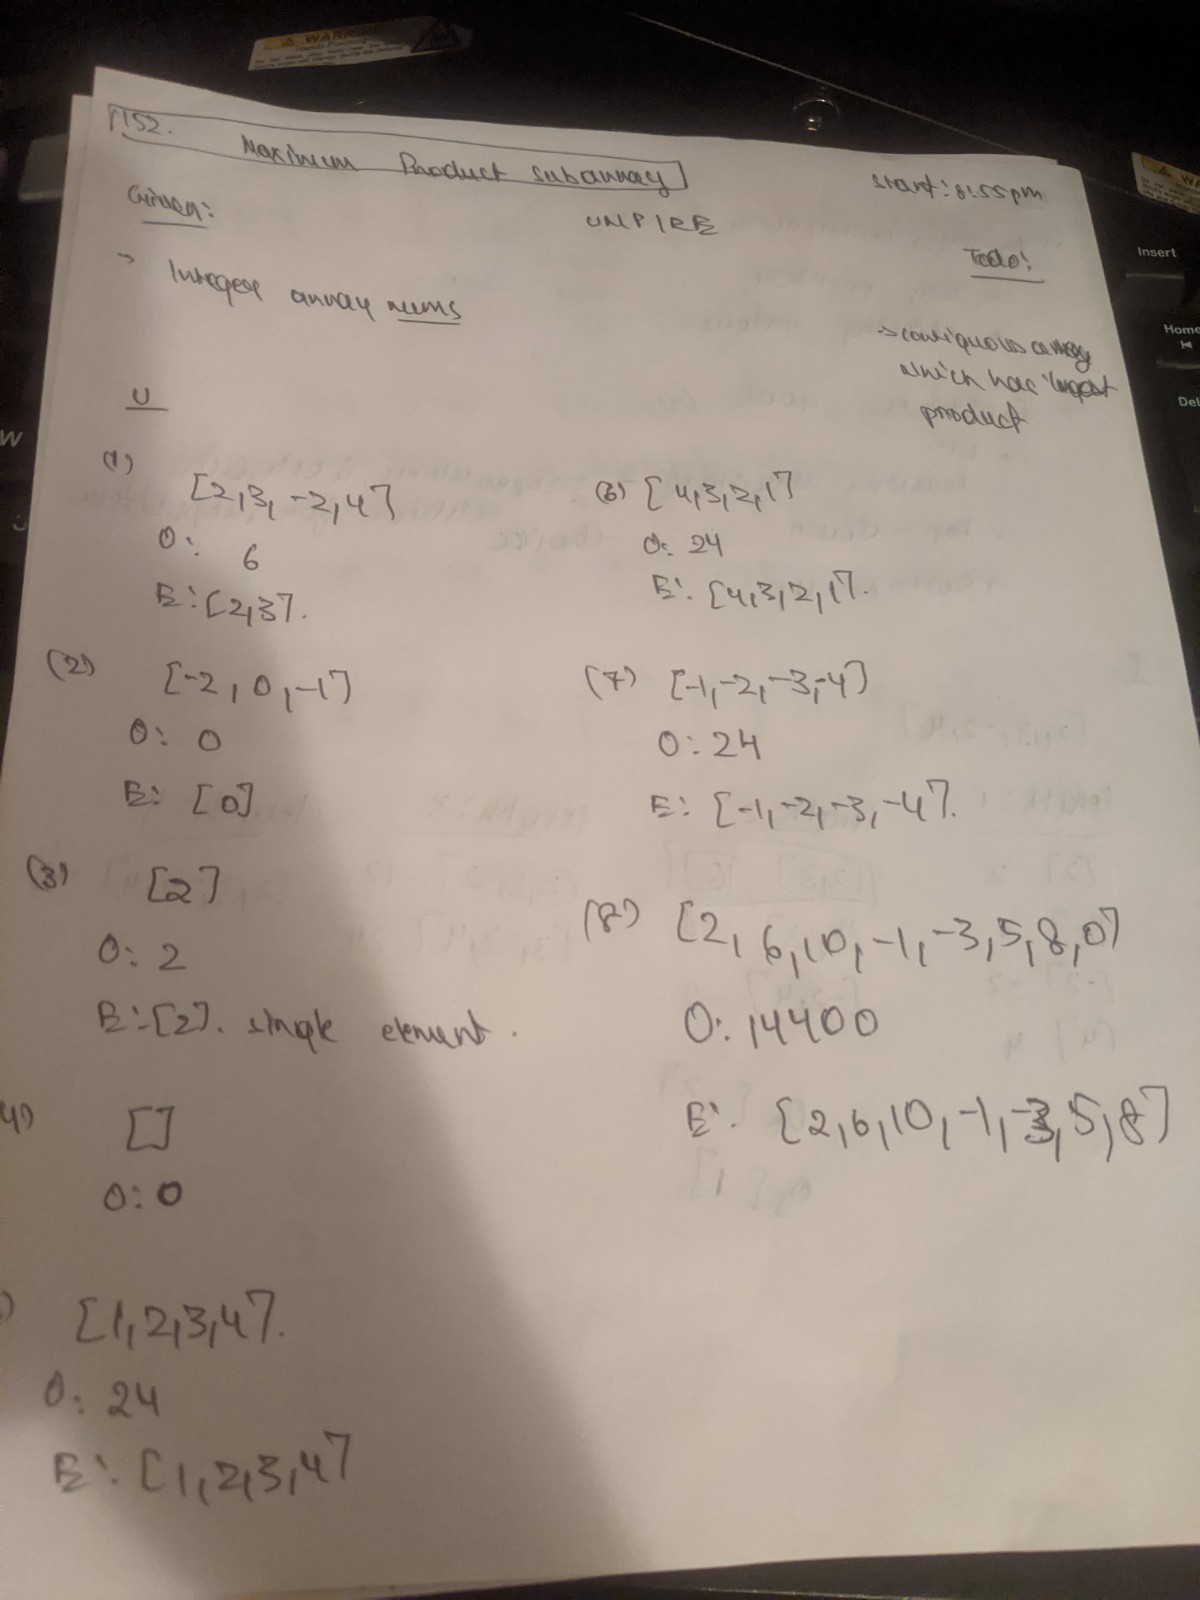 152.
Maximum Product subarray
start: 8:55pm
Given:
UMPIRE
Todo:
→ Integer array nums
→ contiguous array
which has largest
product
U
(1) [2,3,-2,4]
O: 6
E: [2,3].
(2) [-2,0,-1]
O: 0
E: [0]
(3) [2]
O: 2
E: [2]. single element.
4) []
O: 0
) [1,2,3,4].
O: 24
E: [1,2,3,4]
(6) [4,3,2,1]
O: 24
E: [4,3,2,1].
(7) [-1,-2,-3,-4]
O: 24
E: [-1,-2,-3,-4].
(8) [2,6,10,-1,-3,5,8,0]
O: 14400
E: [2,6,10,-1,-3,5,8]
Insert
Home
Del
W